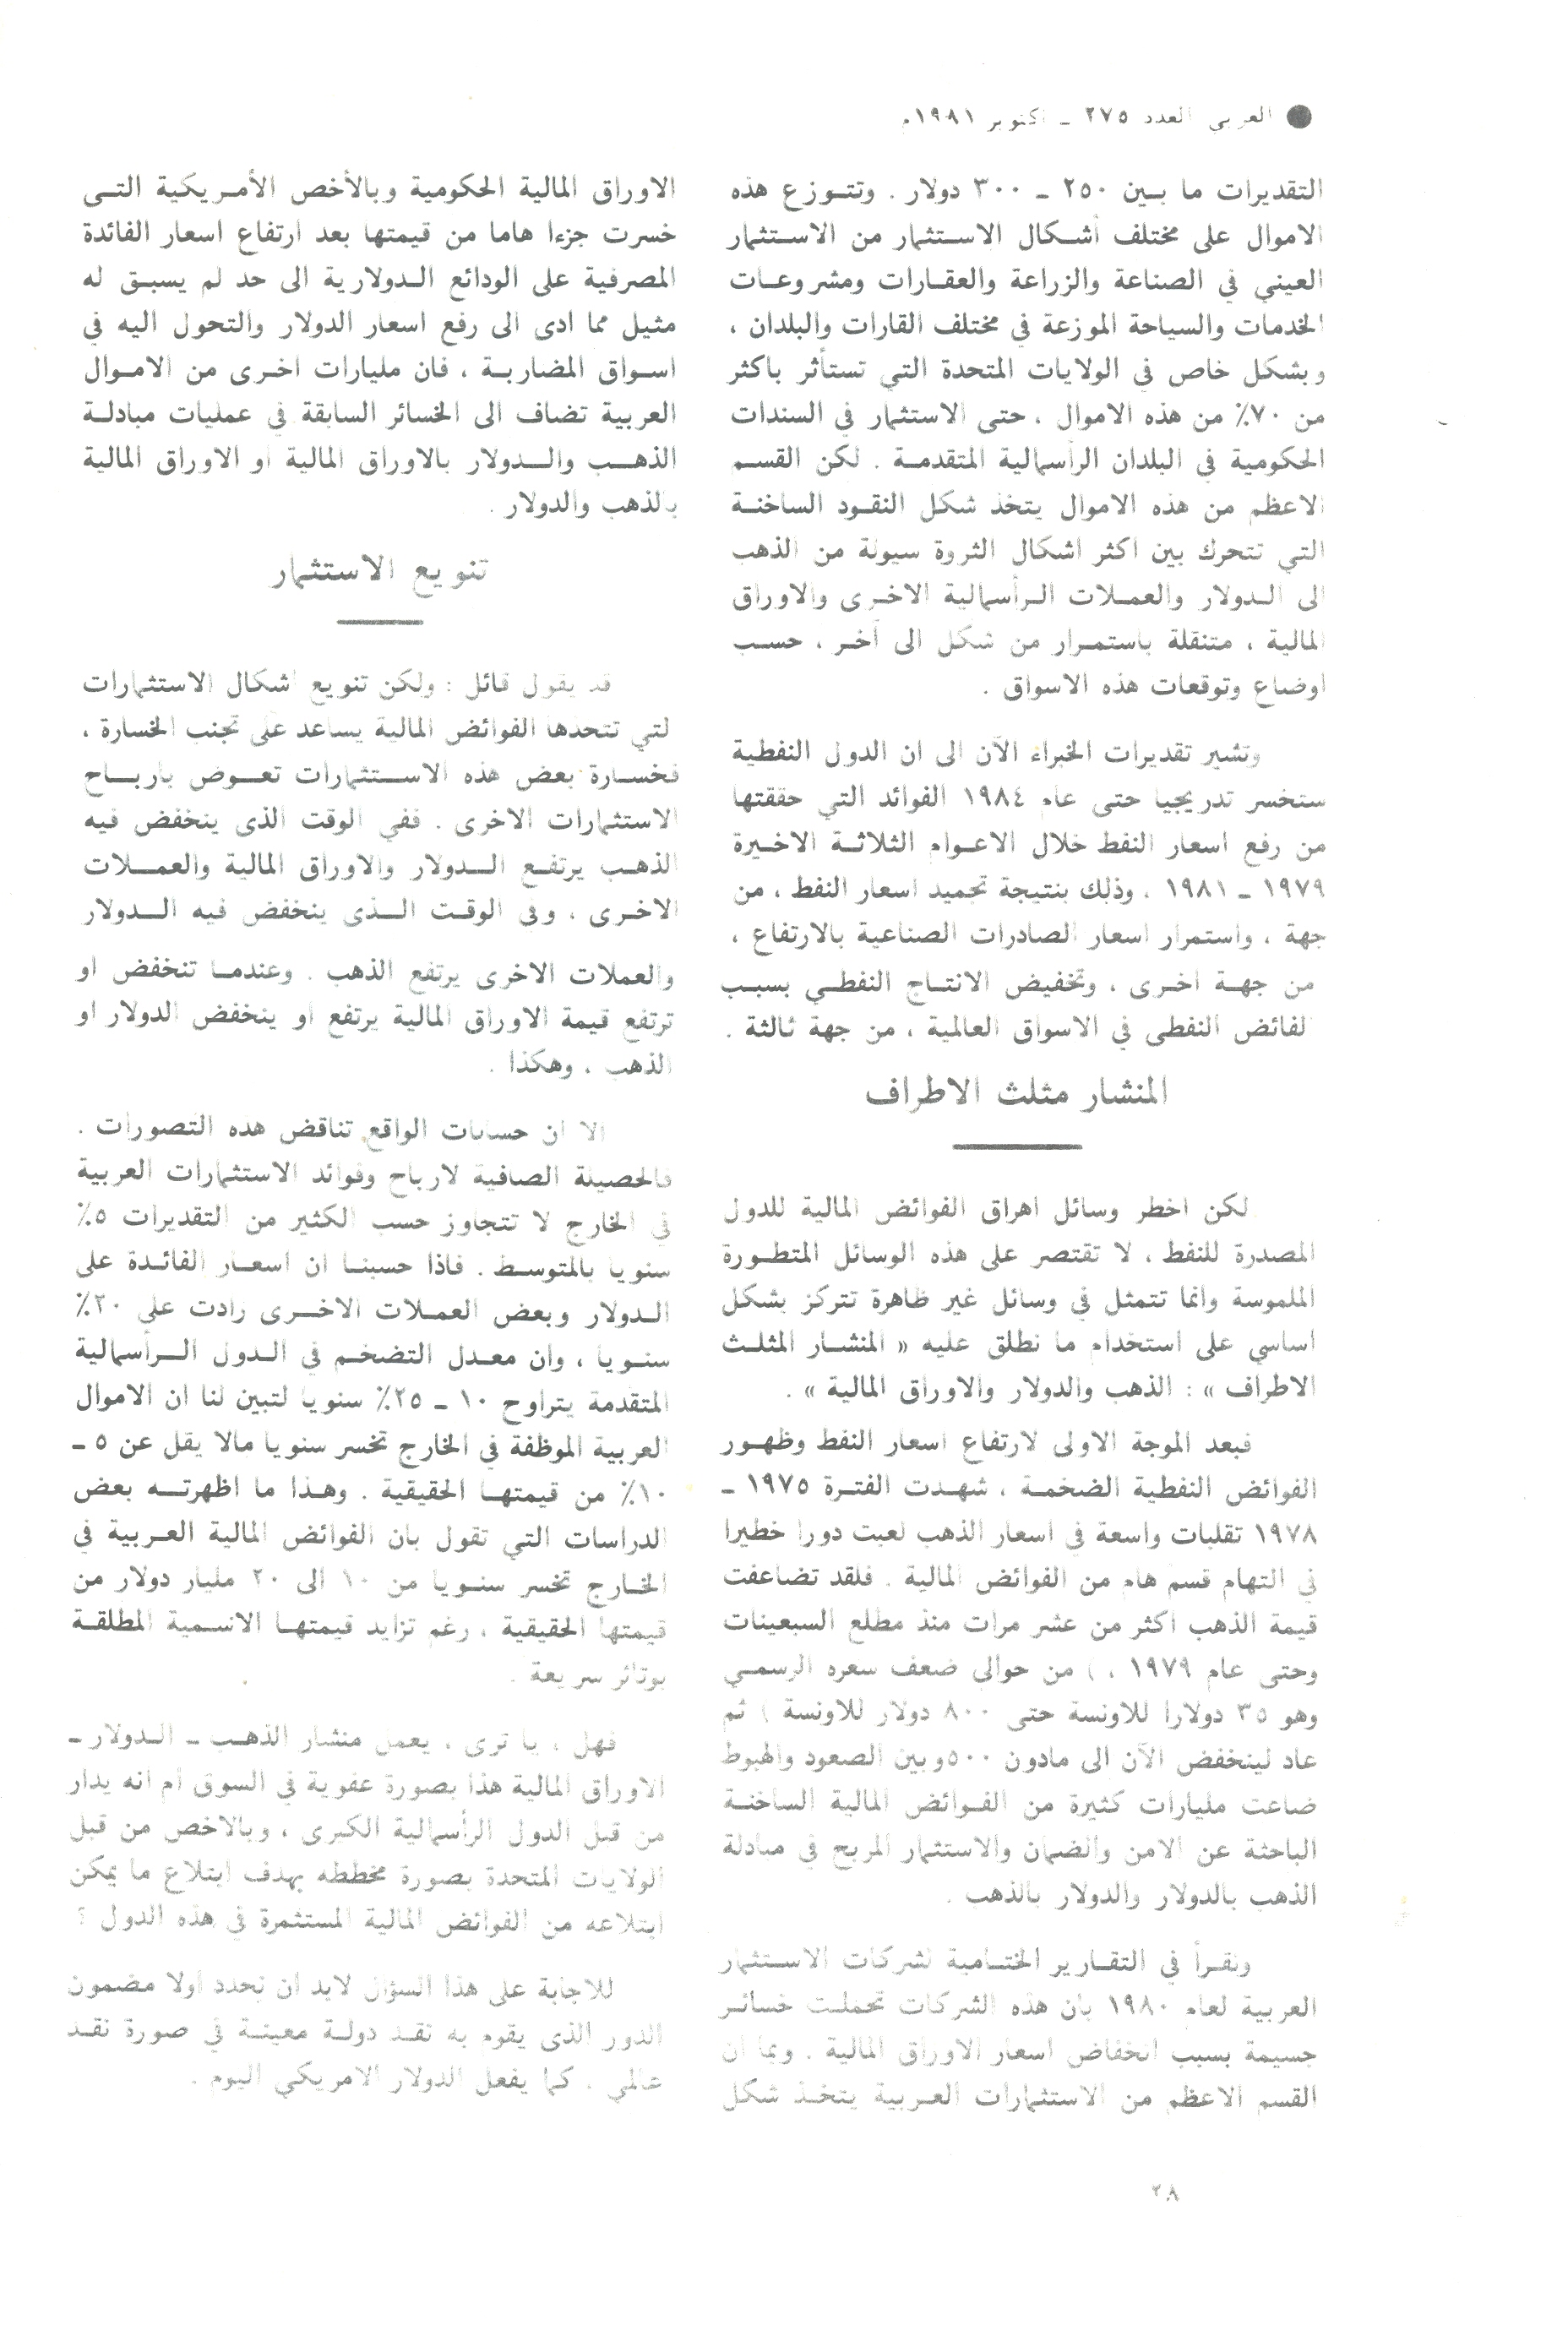 ● العربي العدد ٢٧٥ ـ اكتوبر ١٩٨١م
التقديرات ما بـين ٢٥٠ ـ ٣٠٠ دولار . وتتـوزع هذه
الاموال على مختلف أشـكال الاسـتثمار من الاسـتثمار
العيني في الصناعة والزراعة والعقـارات ومشروعـات
الخدمات والسياحة الموزعة في مختلف القارات والبلدان ،
وبشكل خاص في الولايات المتحدة التي تستأثر باكثر
من ٧٠٪ من هذه الاموال ، حتى الاستثمار في السندات
الحكومية في البلدان الرأسمالية المتقدمـة . لكن القسـم
الاعظم من هذه الاموال يتخذ شكل النقـود الساخنـة
التي تتحرك بين اكثر اشكال الثروة سيولة من الذهب
الى الـدولار والعمـلات الـرأسمالية الاخـرى والاوراق
المالية ، متنقلة باستمـرار من شكل الى آخـر ، حسـب
اوضاع وتوقعات هذه الاسواق .
وتشير تقديرات الخبراء الآن الى ان الدول النفطية
ستخسر تدريجيا حتى عام ١٩٨٤ الفوائد التي حققتها
من رفع اسعار النفط خلال الاعـوام الثلاثـة الاخـيرة
١٩٧٩ ـ ١٩٨١ ، وذلك بنتيجة تجميد اسعار النفط ، من
جهة ، واستمرار اسعار الصادرات الصناعية بالارتفاع ،
من جهـة اخـرى ، وتخفيض الانتـاج النفطـي بسبـب
لفائض النفطى في الاسواق العالمية ، من جهة ثالثة .
المنشار مثلث الاطراف
لكن اخطر وسائل اهراق الفوائض المالية للدول
المصدرة للنفط ، لا تقتصر على هذه الوسائل المتطـورة
الملموسة وانما تتمثل في وسائل غير ظاهرة تتركز بشكل
اساسي على استخدام ما نطلق عليه « المنشـار المثلـث
الاطراف » : الذهب والدولار والاوراق المالية » .
فبعد الموجة الاولى لارتفاع اسعار النفط وظهـور
الفوائض النفطية الضخمـة ، شهـدت الفتـرة ١٩٧٥ ـ
١٩٧٨ تقلبات واسعة في اسعار الذهب لعبت دورا خطيرا
في التهام قسم هام من الفوائض المالية . فلقد تضاعفت
قيمة الذهب اكثر من عشر مرات منذ مطلع السبعينات
وحتى عام ١٩٧٩ ، ) من حوالى ضعف سعره الرسمـي
وهو ٣٥ دولارا للاونسة حتى ٨٠٠ دولار للاونسة ) ثم
عاد لينخفض الآن الى مادون ٥٠٠ وبين الصعود والهبوط
ضاعت مليارات كثيرة من الفـوائض المالية الساخنـة
الباحثة عن الامن والضمان والاستثمار المربح في مبادلة
الذهب بالدولار والدولار بالذهب .
ونقـرأ في التقـارير الختـامية لشركات الاسـتثمار
العربية لعام ١٩٨٠ بان هذه الشركات تحملت خسائـر
جسيمة بسبب انخفاض اسعار الاوراق المالية . وبما ان
القسم الاعظم من الاستثمارات العـربية يتخـذ شكل
الاوراق المالية الحكومية وبالأخص الأمـريكية التـى
خسرت جزءا هاما من قيمتها بعد ارتفاع اسعار الفائدة
المصرفية على الودائع الـدولارية الى حد لم يسبـق له
مثيل مما ادى الى رفع اسعار الدولار والتحول اليه في
اسـواق المضاربـة ، فان مليارات اخـرى من الامـوال
العربية تضاف الى الخسائر السابقة في عمليات مبادلـة
الذهـب والـدولار بالاوراق المالية او الاوراق المالية
بالذهب والدولار .
تنويع الاستثمار
قد يقول قائل : ولكن تنويع اشكال الاستثمارات
لتي تتحدها الفوائض المالية يساعد على تجنب الخسارة ،
فخسـارة بعض هذه الاسـتثمارات تعـوض بأربـاح
الاستثمارات الاخرى . ففي الوقت الذى ينخفض فيه
الذهـب يرتفـع الـدولار والاوراق المالية والعمـلات
الاخـرى ، وفى الوقـت الـذى ينخفض فيه الـدولار
والعملات الاخرى يرتفع الذهب . وعندمـا تنخفض او
ترتفع قيمة الاوراق المالية يرتفع او ينخفض الدولار او
الذهب ، وهكذا .
الا ان حسابات الواقع تناقض هذه التصورات .
فالحصيلة الصافية لارباح وفوائد الاستثمارات العربية
في الخارج لا تتجاوز حسب الكثير من التقديرات ٥٪
سنويا بالمتوسـط . فاذا حسبنـا ان اسعـار الفائـدة على
الـدولار وبعض العمـلات الاخـرى زادت على ٢٠٪
سنـويا ، وان معـدل التضخـم في الـدول الـرأسمالية
المتقدمة يتراوح ١٠ ـ ٢٥٪ سنويا لتبين لنا ان الاموال
العربية الموظفة في الخارج تخسر سنويا مالا يقل عن ٥ ـ
١٠٪ من قيمتهـا الحقيقية . وهـذا ما اظهرتـه بعض
الدراسات التي تقول بان الفوائض المالية العـربية في
الخـارج تخسر سنـويا من ١٠ الى ٢٠ مليار دولار من
قيمتها الحقيقية ، رغم تزايد قيمتهـا الاسـمية المطلقـة
بوتائر سريعة .
فهل ، يا ترى ، يعمل منشار الذهـب ـ الـدولار ـ
الاوراق المالية هذا بصورة عفوية في السوق ام انه يدار
من قبل الدول الرأسمالية الكبرى ، وبالاخص من قبل
الولايات المتحدة بصورة مخططه بهدف ابتلاع ما يمكن
ابتلاعه من الفوائض المالية المستثمرة في هذه الدول ؟
للاجابة على هذا السؤال لابد ان نحدد اولا مضمون
الدور الذى يقوم به نقـد دولـة معينـة في صورة نقـد
عالمي . كما يفعل الدولار الامريكي اليوم .
٢٨